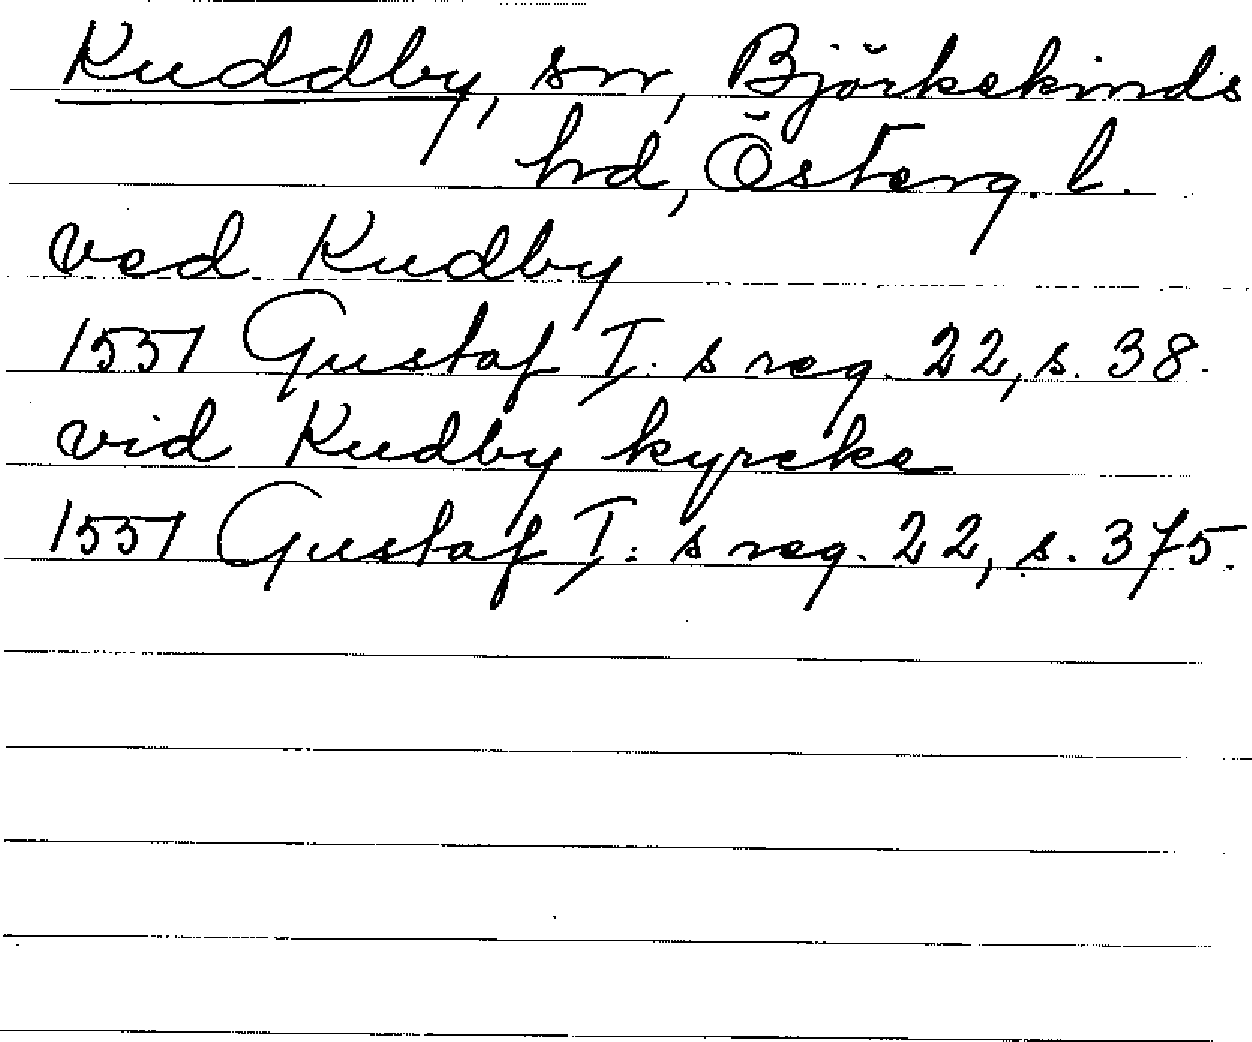 Kuddby, sn, Björkekinds
hd, Österg. l.
ved Kudby
1551 Gustaf I:s reg. 22, s. 38.
vid Kudby kyrcke
1551 Gustaf I:s reg. 22, s. 375.